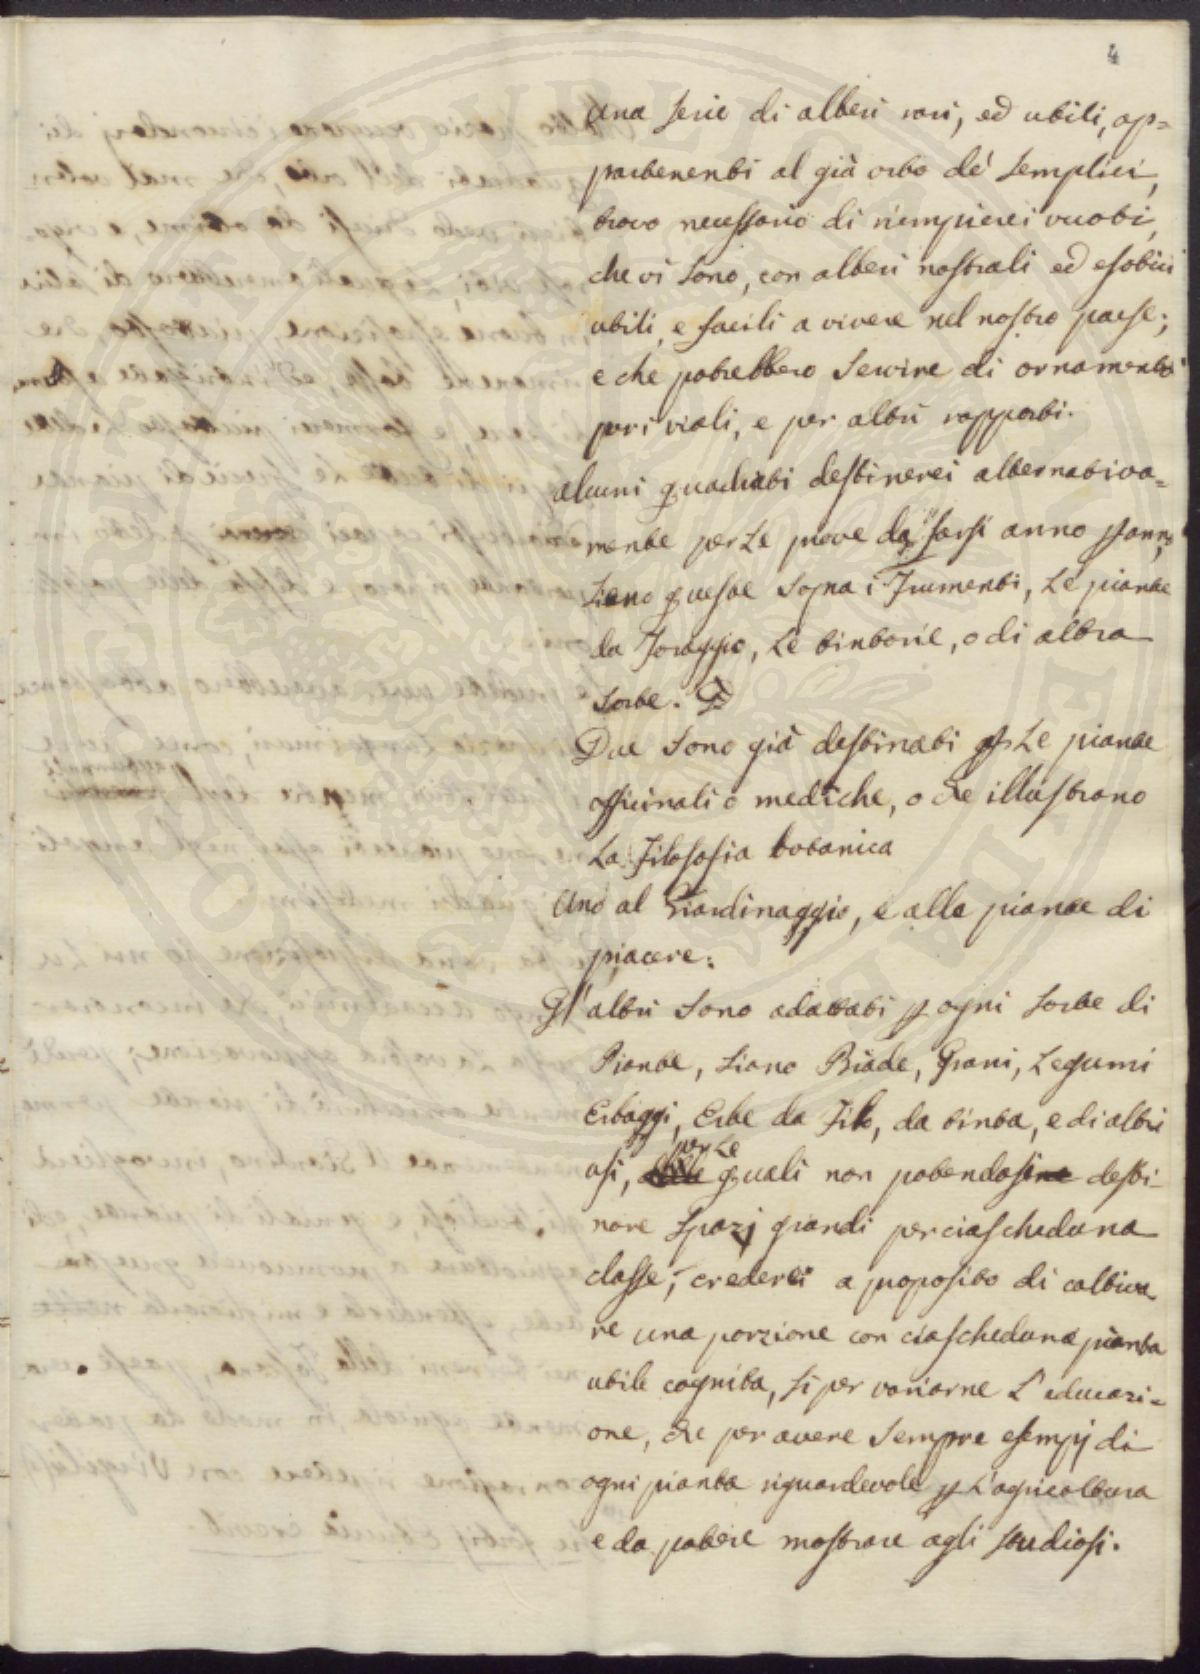 4
Una serie di alberi rari, ed utili, ap=
partenenti al già orto de' semplici,
trovo necessario di riempierei vuoti,
che vi sono, con alberi nostrali ed esotici
utili, e facili a vivere nel nostro paese;
e che potrebbero servire di ornamento
per i viali, e per altri rapporti.
alcuni quadrati destinerei alternativa=
mente per Le prove da farsi anno p anno,
siano queste sopra i Frumenti, Le piante
da Foraggio, Le tintorie, o di altra
sorte.
Due sono già destinati p Le piante
officinali o mediche, o che illustrano
La Filosofia botanica
Uno al Giardinaggio, e alle piante di
piacere:
Gl'altri sono adattati p ogni sorte di
Piante, siano Biade, Grani, Legumi
Erbaggi, Erbe da Filo, da tinta, e di altri
per Le
usi, quali non potendosine desti-
nare spazj grandi per ciascheduna
classe, crederei a proposito di coltiva
re una porzione con ciascheduna pianta
utile cognita, si per variarne L'educazi=
one, che per avere sempre esempj di
ogni pianta riguardevole p L'agricoltura
e da potere mostrare agli studiosi.